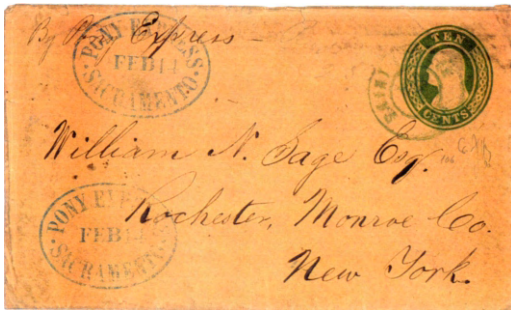 By Pony Express
PONY EXPRESS
FEB 14
SACRAMENTO
TEN
CENTS
William N. Sage Esq.
Rochester, Monroe Co.
New York.
PONY EXPRESS
FEB 14
SACRAMENTO